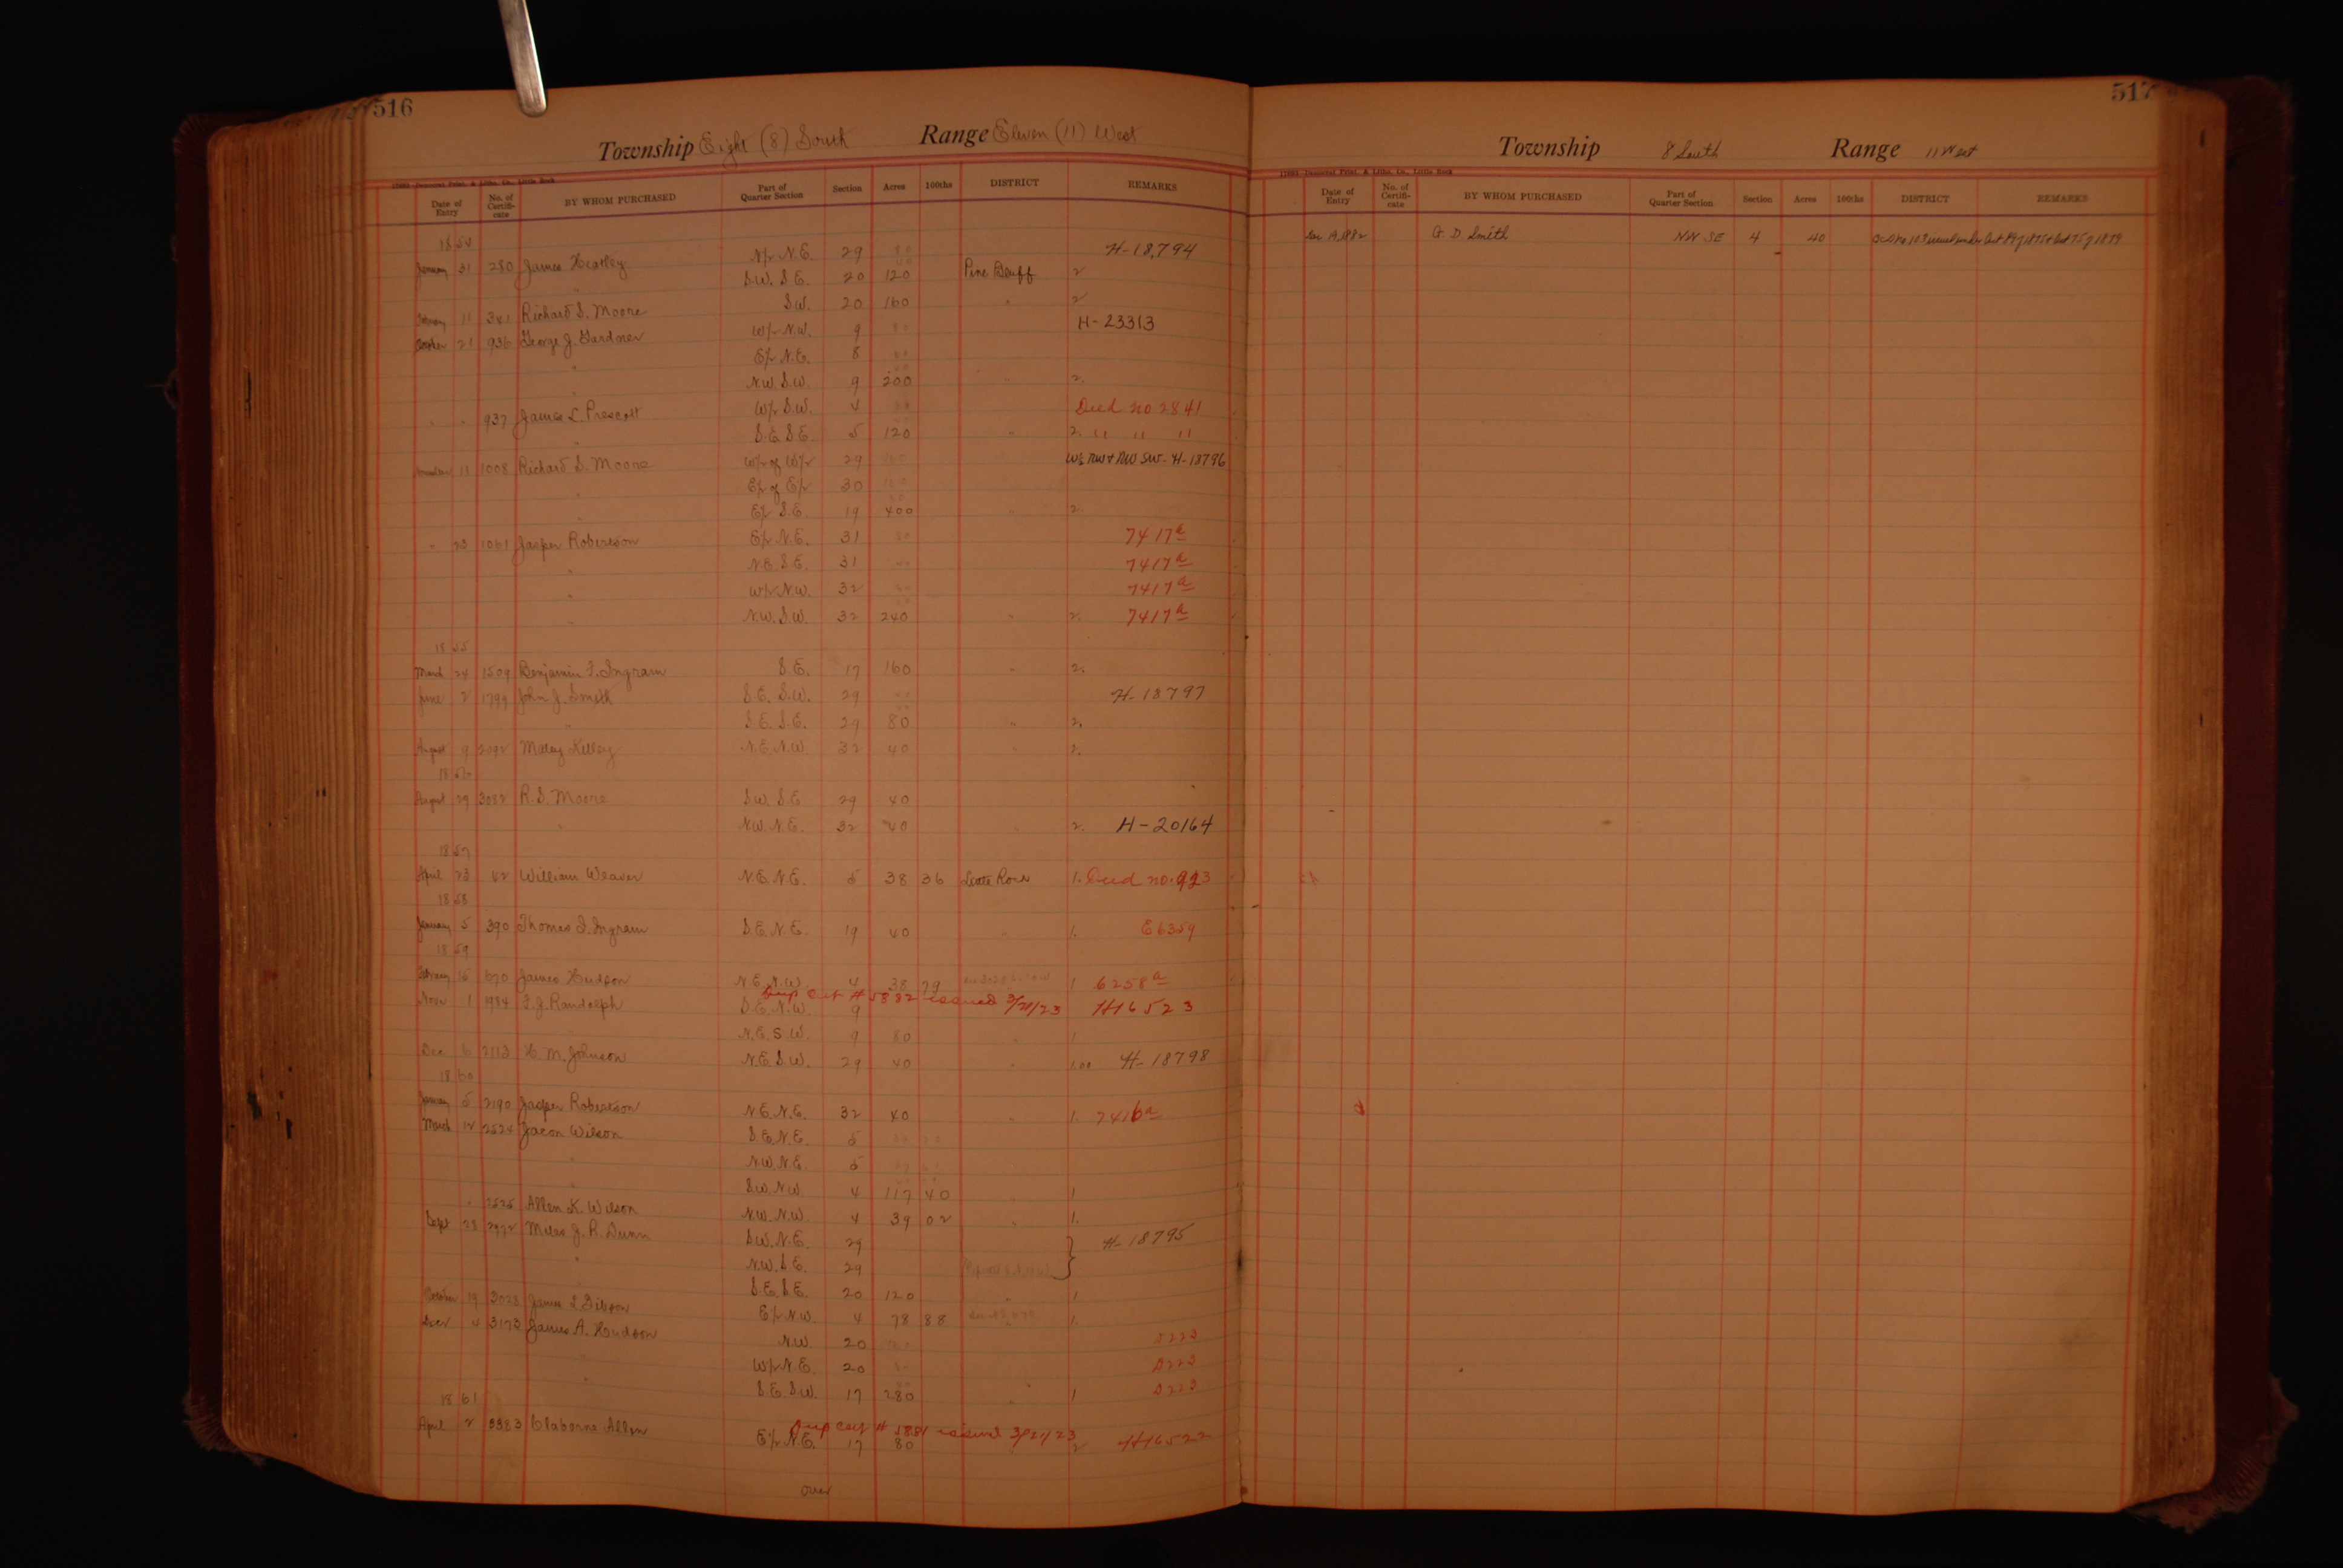 516
Township Eight (8) South Range Eleven (11) West
17693 Democrat Print. & Litho. Co., Little Rock
Date of Entry No. of Certifi-cate BY WHOM PURCHASED Part of Quarter Section Section Acres 100ths DISTRICT REMARKS
1854
January 31 280 James Hextley N/2 N.E. 29 80 H-18,794
" S.W. S.E. 20 120 Pine Bluff 2
February 11 341 Richard S. Moore S.W. 20 160 " 2
October 21 936 George J. Gardner W/2 N.W. 9 80 H-23313
" E/2 N.E. 8 80
" N.W. S.W. 9 200 " 2.
" " 937 James L. Prescott W/2 S.W. 4 80 Deed no 2841
" S.E. S.E. 5 120 " 2. " " "
11 1008 Richard S. Moore W/2 of W/2 29 160 W½ NW & NW SW - H-18796
" E/2 of E/2 30 160
" E/2 S.E. 19 400 " 2.
" 20 1061 Jasper Robertson E/2 N.E. 31 80 7417a
" N.E. S.E. 31 40 7417a
" W/2 N.W. 32 80 7417a
" N.W. S.W. 32 240 " 2. 7417a
1855
March 24 1509 Benjamin F. Ingram S.E. 17 160 " 2.
June 2 1799 John J. Smith S.E. S.W. 29 40 H-18797
" S.E. S.E. 29 80 " 2.
August 9 2092 Kelley N.E. N.W. 32 40 " 2.
18
August 29 3082 R. S. Moore S.W. S.E. 29 40
" N.W. N.E. 32 40 " 2. H-20164
1857
April 23 62 William Weaver N.E. N.E. 5 38 36 Little Rock 1. Deed no. 923
1858
January 5 390 Thomas I. Ingram S.E. N.E. 19 40 " 1. E6359
1859
February 16 670 James Hudson N.E. N.W. 4 38 79 1 6258a
Dup Cert # 5882 issued 3/21/23
Nov 1 1984 F. J. Randolph S.E. N.W. 9 H16523
" N.E. S.W. 9 80 " 1
Dec 6 2113 H. M. Johnson N.E. S.W. 29 40 " 1.00 H-18798
1860
January 5 2190 Jasper Robertson N.E. N.E. 32 40 1. 7416a
March 12 2524 Jacon Wilson S.E. N.E. 5
" N.W. N.E. 5
" S.W. N.W. 4 117 40 " 1
" 2525 Allen K. Wilson N.W. N.W. 4 39 02 " 1.
Sept 28 2972 Miles J. R. Dunn S.W. N.E. 29 H-18795
" N.W. S.E. 29
" S.E. S.E. 20 120 " 1
October 19 3028 James L Gibson E/2 N.W. 4 78 88 1.
Decr 4 3173 James A. Hudson N.W. 20 160 5223
" W/2 N.E. 20 80 5223
" S.E. S.W. 17 280 " 1 5223
1861
Dup Cert # 5881 issued 3/21/23
April 2 3383 Claborne Allen E/2 N.E. 17 80 2 H16522
over
517
Township 8 South Range 11 West
17693 Democrat Print. & Litho. Co., Little Rock
Date of Entry No. of Certifi-cate BY WHOM PURCHASED Part of Quarter Section Section Acres 100ths DISTRICT REMARKS
19, 1882 G. D. Smith NW SE 4 40 No 103 issued under Act 89 of 1875 & Act 75 of 1879